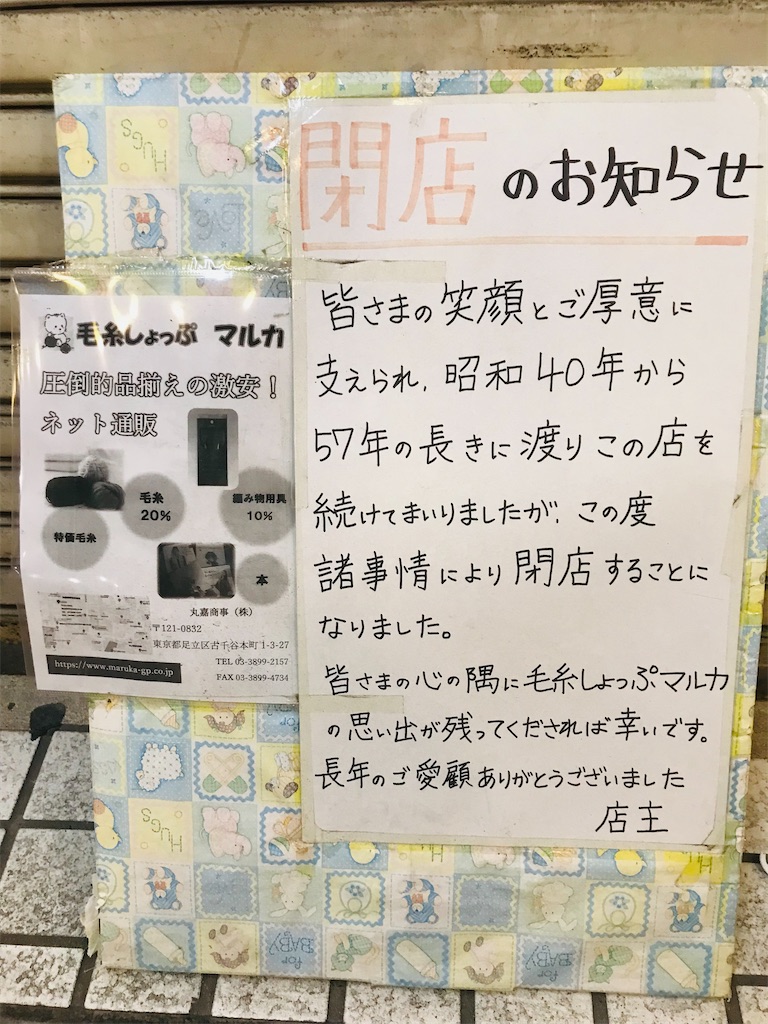 閉店のお知らせ
皆さまの笑顔とご厚意に
支えられ、昭和40年から
57年の長きに渡りこの店を
続けてまいりましたが、この度
諸事情により閉店することに
なりました。
皆さまの心の隅に毛糸しょっぷマルカ
の思い出が残ってくだされば幸いです。
長年のご愛顧ありがとうございました
店主
毛糸しょっぷ マルカ
圧倒的品揃えの激安！
ネット通販
毛糸
20%
編み物用具
10%
特価毛糸
本
丸嘉商事（株）
〒121-0832
東京都足立区古千谷本町1-3-27
TEL 03-3899-2157
FAX 03-3899-4734
https://www.maruka-gp.co.jp
HUGS
Love
HUGS
for BABY
for BABY